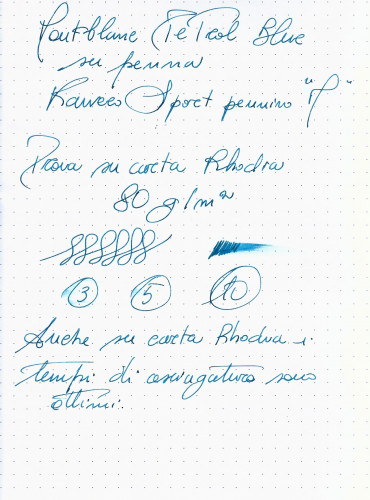 Montblanc PeTrol Blue
su penna
Kaweco Sport pennino "M"
Prova su carta Rhodia
80 gr/m²
3 5 10
Anche su carta Rhodia i
tempi di asciugatura sono
ottimi.